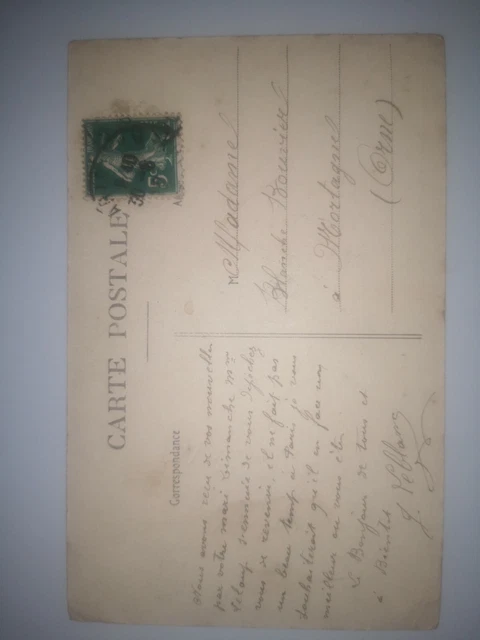 CARTE POSTALE
Correspondance
Nous avons reçu de vos nouvelles
par votre mari Dimanche Mme
s'ennuie de vous dépêchez
vous de revenir, il ne fait pas
un beau temps à Paris je vous
souhaiterait qu'il en face un
meilleur ou vous êtes
Le Bonjour de tous et
à Bientôt
J. Leblanc
M Madame
Blanche Bouvier
à Mortagne
(Orne)